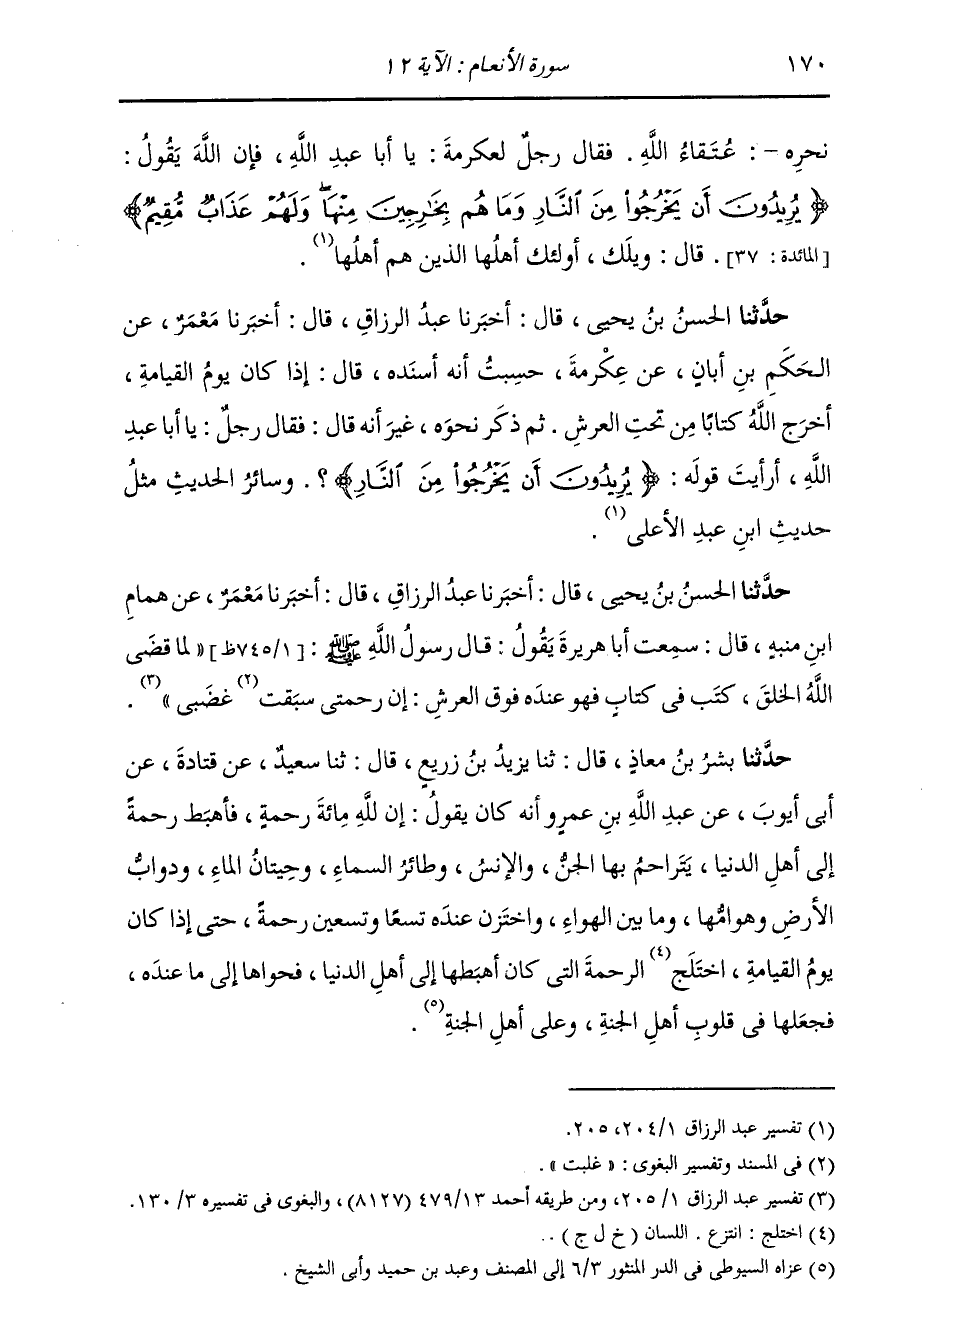 ١٧٠ سورة الأنعام : الآية ١٢
نحرِه - : عُتَقاءُ اللَّهِ . فقال رجلٌ لعكرمةَ : يا أبا عبدِ اللَّهِ ، فإن اللَّهَ يَقُولُ :
﴿ يُرِيدُونَ أَن يَخْرُجُوا۟ مِنَ ٱلنَّارِ وَمَا هُم بِخَـٰرِجِينَ مِنْهَا ۖ وَلَهُمْ عَذَابٌ مُّقِيمٌ ﴾
[المائدة : ٣٧] . قال : ويلَك ، أولئك أهلُها الذين هم أهلُها(١) .
حدَّثنا الحسنُ بنُ يحيى ، قال : أخبَرنا عبدُ الرزاقِ ، قال : أخبَرنا مَعْمَرٌ ، عن
الحَكَمِ بنِ أبانٍ ، عن عِكْرمةَ ، حسِبتُ أنه أسنَده ، قال : إذا كان يومُ القيامةِ ،
أخرَج اللَّهُ كتابًا مِن تحتِ العرشِ . ثم ذكَر نحوَه ، غيرَ أنه قال : فقال رجلٌ : يا أبا عبدِ
اللَّهِ ، أرأيتَ قولَه : ﴿ يُرِيدُونَ أَن يَخْرُجُوا۟ مِنَ ٱلنَّارِ ﴾ ؟ . وسائرُ الحديثِ مثلُ
حديثِ ابنِ عبدِ الأعلى(١) .
حدَّثنا الحسنُ بنُ يحيى ، قال : أخبَرنا عبدُ الرزاقِ ، قال : أخبَرنا مَعْمَرٌ ، عن همامِ
ابنِ منبهٍ ، قال : سمِعت أبا هريرةَ يَقُولُ : قال رسولُ اللَّهِ ﷺ : [٧٤٥/١ظ] « لما قضَى
اللَّهُ الخلقَ ، كتَب فى كتابٍ فهو عندَه فوق العرشِ : إن رحمتى سبَقت(٢) غضَبى »(٣) .
حدَّثنا بشرُ بنُ معاذٍ ، قال : ثنا يزيدُ بنُ زريعٍ ، قال : ثنا سعيدٌ ، عن قتادةَ ، عن
أبى أيوبَ ، عن عبدِ اللَّهِ بنِ عمرٍو أنه كان يقولُ : إن للَّهِ مِائةَ رحمةٍ ، فأهبَط رحمةً
إلى أهلِ الدنيا ، يَتَراحمُ بها الجنُّ ، والإنسُ ، وطائرُ السماءِ ، وحِيتانُ الماءِ ، ودوابُّ
الأرضِ وهوامُّها ، وما بين الهواءِ ، واختَزن عندَه تسعًا وتسعين رحمةً ، حتى إذا كان
يومُ القيامةِ ، اختَلَج(٤) الرحمةَ التى كان أهبَطها إلى أهلِ الدنيا ، فحواها إلى ما عندَه ،
فجعَلها فى قلوبِ أهلِ الجنةِ ، وعلى أهلِ الجنةِ(٥) .
(١) تفسير عبد الرزاق ٢٠٤/١، ٢٠٥.
(٢) فى المسند وتفسير البغوى : « غلبت » .
(٣) تفسير عبد الرزاق ٢٠٥/١، ومن طريقه أحمد ٤٧٩/١٣ (٨١٢٧) ، والبغوى فى تفسيره ١٣٠/٣.
(٤) اختلج : انتزع . اللسان ( خ ل ج ) ..
(٥) عزاه السيوطى فى الدر المنثور ٦/٣ إلى المصنف وعبد بن حميد وأبى الشيخ .